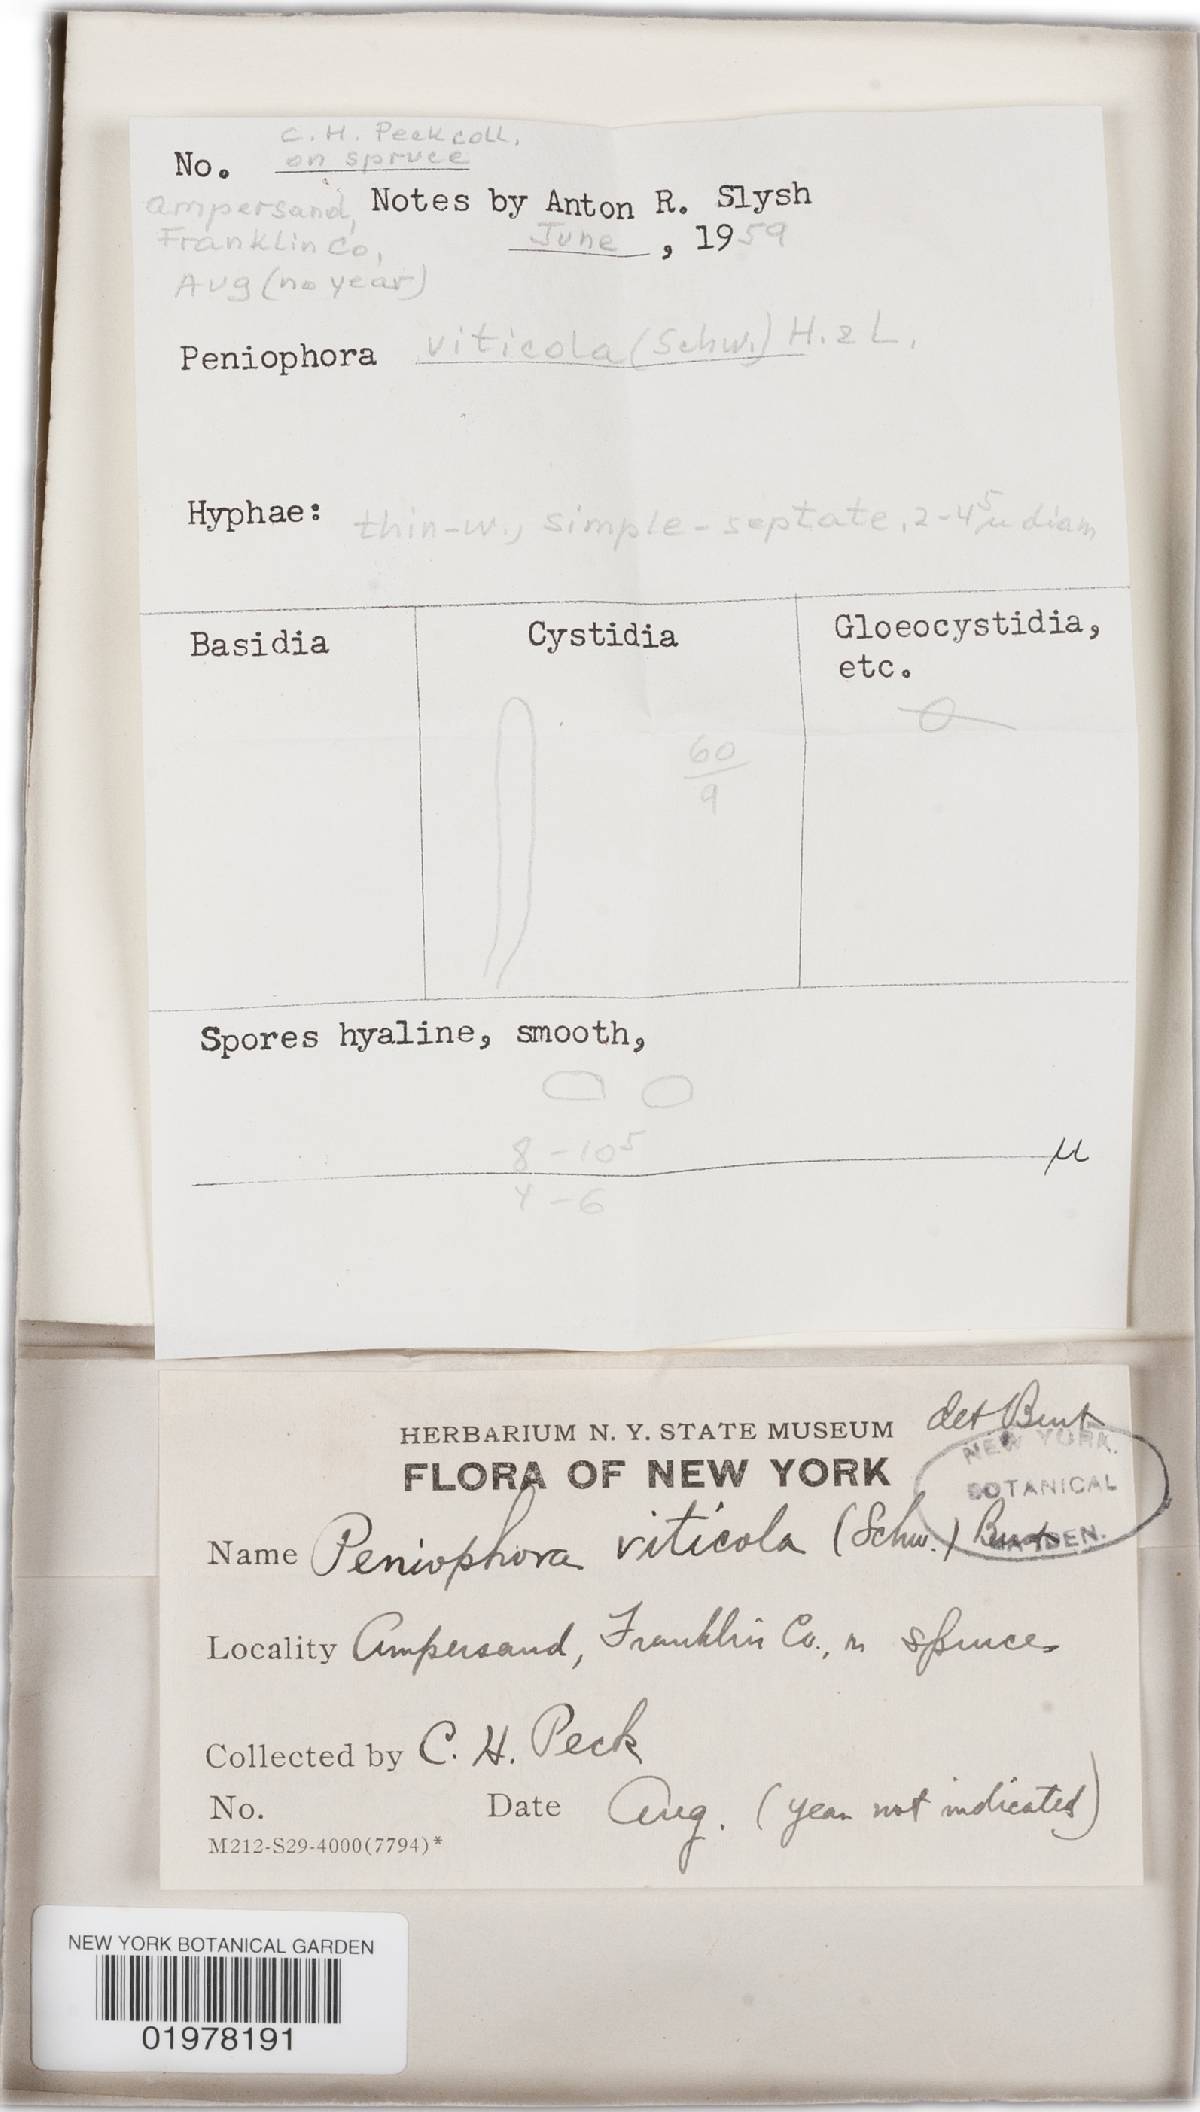 C. H. Peck coll.
No. on spruce
Ampersand, Notes by Anton R. Slysh
Franklin Co, June, 1959
Aug (no year)
Peniophora viticola (Schw.) H. & L.
Hyphae: thin-w., simple-septate, 2-4⁵ μ diam
Basidia Cystidia Gloeocystidia,
etc.
60
9
Spores hyaline, smooth,
8-10⁵
μ
4-6
det Burt
HERBARIUM N. Y. STATE MUSEUM
FLORA OF NEW YORK
NEW YORK
BOTANICAL
GARDEN.
Name Peniophora viticola (Schw.) Burt
Locality Ampersand, Franklin Co., on spruce
Collected by C. H. Peck
No. Date Aug. (year not indicated)
M212-S29-4000(7794)*
NEW YORK BOTANICAL GARDEN
01978191